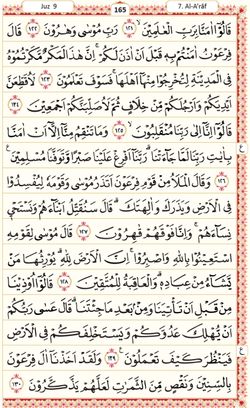 Juz 9 165 7. Al-A'râf
قَالُوٓا۟ ءَامَنَّا بِرَبِّ ٱلْعَٰلَمِينَ ﴿١٢١﴾ رَبِّ مُوسَىٰ وَهَٰرُونَ ﴿١٢٢﴾ قَالَ
فِرْعَوْنُ ءَامَنتُم بِهِۦ قَبْلَ أَنْ ءَاذَنَ لَكُمْ ۖ إِنَّ هَٰذَا لَمَكْرٌ مَّكَرْتُمُوهُ
فِى ٱلْمَدِينَةِ لِتُخْرِجُوا۟ مِنْهَآ أَهْلَهَا ۖ فَسَوْفَ تَعْلَمُونَ ﴿١٢٣﴾ لَأُقَطِّعَنَّ
أَيْدِيَكُمْ وَأَرْجُلَكُم مِّنْ خِلَٰفٍ ثُمَّ لَأُصَلِّبَنَّكُمْ أَجْمَعِينَ ﴿١٢٤﴾
قَالُوٓا۟ إِنَّآ إِلَىٰ رَبِّنَا مُنقَلِبُونَ ﴿١٢٥﴾ وَمَا تَنقِمُ مِنَّآ إِلَّآ أَنْ ءَامَنَّا
بِـَٔايَٰتِ رَبِّنَا لَمَّا جَآءَتْنَا ۚ رَبَّنَآ أَفْرِغْ عَلَيْنَا صَبْرًا وَتَوَفَّنَا مُسْلِمِينَ ع
﴿١٢٦﴾ وَقَالَ ٱلْمَلَأُ مِن قَوْمِ فِرْعَوْنَ أَتَذَرُ مُوسَىٰ وَقَوْمَهُۥ لِيُفْسِدُوا۟
فِى ٱلْأَرْضِ وَيَذَرَكَ وَءَالِهَتَكَ ۚ قَالَ سَنُقَتِّلُ أَبْنَآءَهُمْ وَنَسْتَحْىِۦ
نِسَآءَهُمْ وَإِنَّا فَوْقَهُمْ قَٰهِرُونَ ﴿١٢٧﴾ قَالَ مُوسَىٰ لِقَوْمِهِ
ٱسْتَعِينُوا۟ بِٱللَّهِ وَٱصْبِرُوٓا۟ ۖ إِنَّ ٱلْأَرْضَ لِلَّهِ يُورِثُهَا مَن
يَشَآءُ مِنْ عِبَادِهِۦ ۖ وَٱلْعَٰقِبَةُ لِلْمُتَّقِينَ ﴿١٢٨﴾ قَالُوٓا۟ أُوذِينَا
مِن قَبْلِ أَن تَأْتِيَنَا وَمِنۢ بَعْدِ مَا جِئْتَنَا ۚ قَالَ عَسَىٰ رَبُّكُمْ
أَن يُهْلِكَ عَدُوَّكُمْ وَيَسْتَخْلِفَكُمْ فِى ٱلْأَرْضِ
فَيَنظُرَ كَيْفَ تَعْمَلُونَ ﴿١٢٩﴾ وَلَقَدْ أَخَذْنَآ ءَالَ فِرْعَوْنَ ع
بِٱلسِّنِينَ وَنَقْصٍ مِّنَ ٱلثَّمَرَٰتِ لَعَلَّهُمْ يَذَّكَّرُونَ ﴿١٣٠﴾